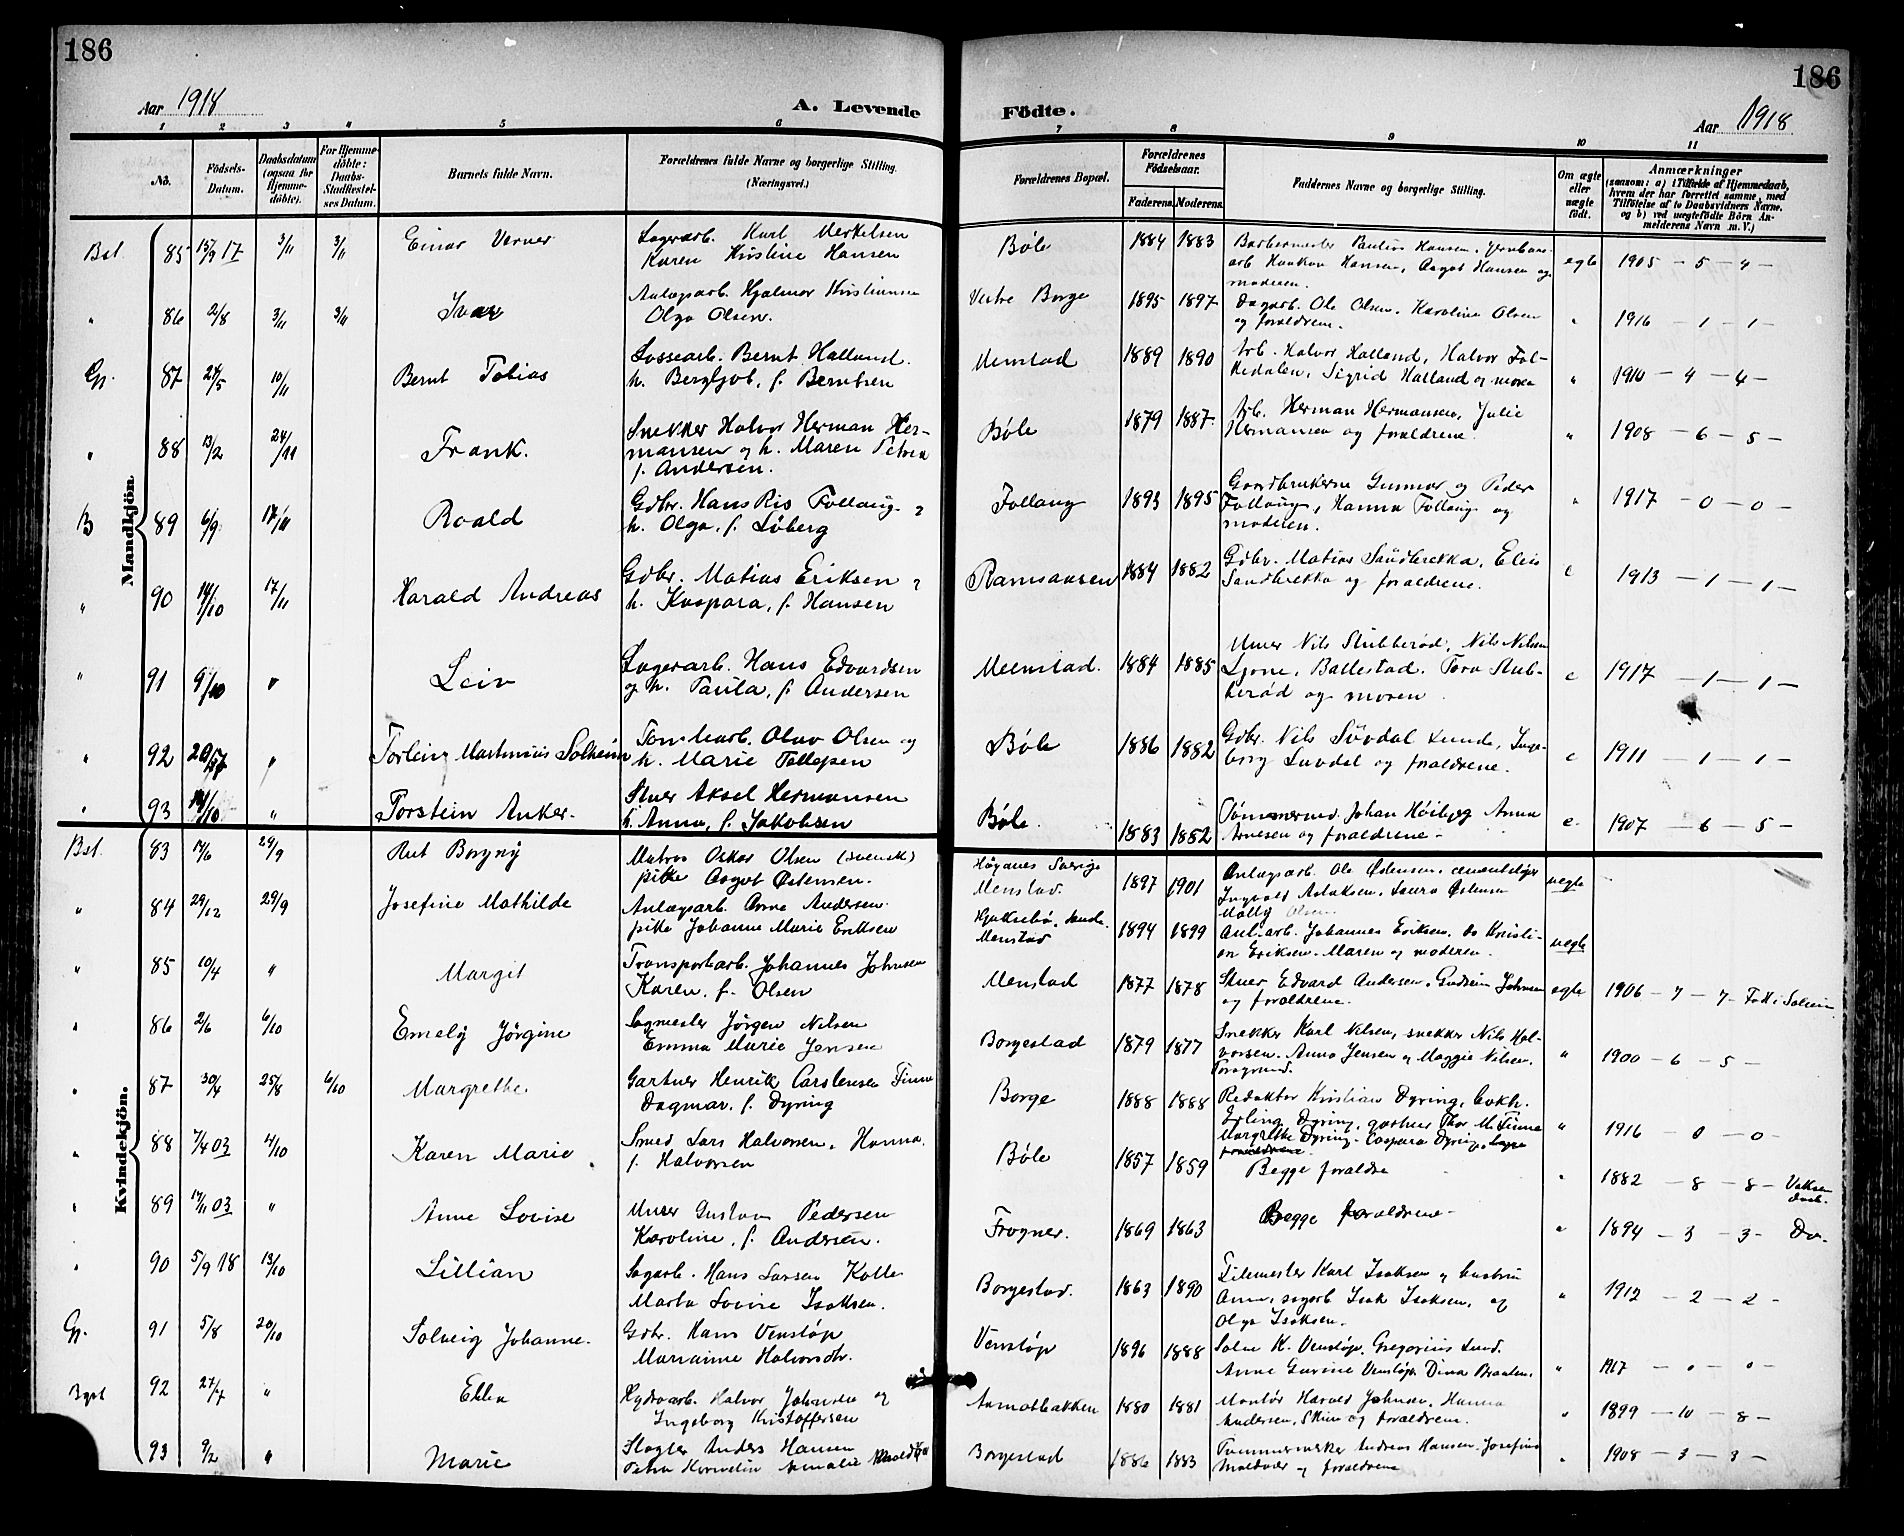 186
Aar 1918
A. Levende
1 2 3 4 5 6
No.
Födsels-Datum.
Daabsdatum (ogsaa for Hjemme-döbte).
For Hjemme-döbte: Daabs-Stadfæstel-ses Datum.
Barnets fulde Navn.
Forældrenes fulde Navne og borgerlige Stilling. (Næringsvei.)
Mandkjön.
Bst. 85 15/9 17 3/11 3/11 Einar Verner Lagerarb. Karl Merkelsen
Karen Kirstine Hansen
" 86 2/8 3/11 3/11 Ivar Anlægsarb. Hjalmar Kristiansen
Olga Olsen.
Gp. 87 24/5 10/11 Bernt Tobias Lossearb. Bernt Halland.
h. Bergljot, f. Berntsen
" 88 13/2 24/11 Frank. Snekker Halvor Herman Her-
mansen og h. Maren Petrea
f. Andersen.
B 89 6/9 17/11 Roald Gdbr. Hans Ris Follaug
h. Olga, f. Löberg
" 90 14/10 17/11 Harald Andreas Gdbr. Matias Eriksen
h. Kaspara, f. Hansen
" 91 9/10 " Leiv Lagerarb. Hans Edvardsen
og h. Paula, f. Andersen
" 92 " Torleiv Martinius Solheim Olav Olsen og
h. Marie Tollefsen
" 93 14/10 " Torstein Anker. Stuer Aksel Hermansen
h. Anna, f. Jakobsen
Kvindekjön.
Bst. 83 14/6 29/9 Rut Borgny Matros Oskar Olsen (svensk)
pike Aagot Østensen.
" 84 29/12 29/9 Josefine Mathilde Anlægsarb. Arne Andersen.
pike Johanne Marie Eriksen
" 85 10/4 " Margit Transportarb. Johannes Johnsen
Karen, f. Olsen
" 86 2/6 6/10 Emely Jörgine Sagmester Jörgen Nilsen
Emma Marie Jensen
" 87 30/4 25/8 6/10 Margrethe Gartner Henrik Carstensen Finne
Dagmar, f. Dyring
" 88 7/4 03 4/10 Karen Marie Smed Lars Halvorsen, Hanna
f. Halvorsen
" 89 14/11 03 " Anne Lovise Murer Gustav Pedersen
Karoline, f. Andersen.
" 90 5/9 18 13/10 Lillian Sagarb. Hans Larsen Kolle
Marta Lovise Isaksen.
Gp. 91 5/8 20/10 Solveig Johanne. Gdbr. Hans Venstöp
Marianne Halvorsdtr.
92 27/7 " Ellen Hydroarb. Halvor Johansen og
Ingeborg Kristoffersen
93 9/2 " Marie Slagter Anders Hansen
Petra Kornelia Amalie
186
Födte.
Aar 1918
7 8 9 10 11
Forældrenes Bopæl.
Forældrenes Födselsaar.
Faderens. Moderens.
Faddernes Navne og borgerlige Stilling.
Om ægte eller uægte födt.
Anmærkninger
(saasom: a) i Tilfælde af Hjemmedaab,
hvem der har forrettet samme, med
Tilföielse af to Daabsvidners Navne,
og b) ved uægtefödte Börn An-
melderens Navn m. V.)
Böle 1884 1883 Barbermester Paulius Hansen,
arb Haakon Hansen, Aagot Hansen og egte 1905 - 5 - 4 -
moderen.
Vestre Borge 1895 1897 Dagarb. Ole Olsen, Karoline Olsen
og forældrene. " 1916 - 1 - 1 -
Menstad 1889 1890 Arb. Halvor Halland, Halvor Fol-
kedalen, Sigrid Halland og moren " 1910 - 4 - 4 -
Böle 1879 1887 Arb. Herman Hermansen, Julie
Hermansen og forældrene. " 1908 - 6 - 5 -
Follaug 1893 1895 Gaardbrukerne Gunnar og Peder
Follaug, Hanna Follaug og " 1917 - 0 - 0 -
moderen.
Ramsaasen 1884 1882 Gdbr. Matias Sandbrekka, Elen
Sandbrekka og forældrene. e 1913 - 1 - 1 -
Menstad. 1884 1885 Murer Nils Stubberöd, Nils Nilsen
Ballestad. Tora Stub-
beröd og moren. e 1917 - 1 - 1 -
Böle 1886 1882 Gdbr. Nils Lunde, Inge-
borg og forældrene. e 1911 - 1 - 1 -
Böle. 1883 1882 Tömmermd. Johan Höiby, Anna
Arnesen og forældrene - e. 1907 - 6 - 5 -
Höganes Sverige
Menstad. 1897 1901 Anlægsarb. Ole Østensen,
Ingvald Aslaksen, Laura Østensen uegte
Molly Olsen.
Menstad 1894 1899 Anl.arb. Johannes Eriksen, do Kristi-
an Eriksen. Maren og moderen. uegte
Menstad 1877 1878 Stuer Edvard Andersen, Gudrun Johnsen
og forældrene. egte 1906 - 7 - 7 -
Borgestad 1879 1877 Snekker Karl Nilsen, snekker Nils Hal-
vorsen. Anna Jensen og Maggie Nilsen. " 1900 - 6 - 5 -
Borge 1888 1888 Redaktör Kristian Dyring,
Erling Dyring, gartner Thor M. Finne
Margrethe Dyring, Caspara Dyring, begge " 1916 - 0 - 0 -
forældrene.
Böle 1857 1859 Begge forældre " 1882 - 8 - 8 - Voksen
daab.
Frogner. 1869 1863 Begge forældrene - " 1894 - 3 - 3 - Do.
Borgestad. 1863 1890 Filemester Karl Isaksen og hustru
Anna, sagarb Isak Isaksen, og " 1912 - 2 - 2 -
Olga Isaksen.
Venstöp 1896 1888 Solve K. Venstöp, Gregorius Lund.
Anne Gurine Venstöp, Dina Braaten. " 1917 - 0 - 0 -
Aamotbakken 1880 1881 Montör Harald Johnsen, Hanna
Andersen, Skien og forældrene. " 1899 - 10 - 8 -
Borgestad 1886 1883 Tømmermester Andreas Hansen, Josefine
og forældrene " 1908 - 3 - 3 -